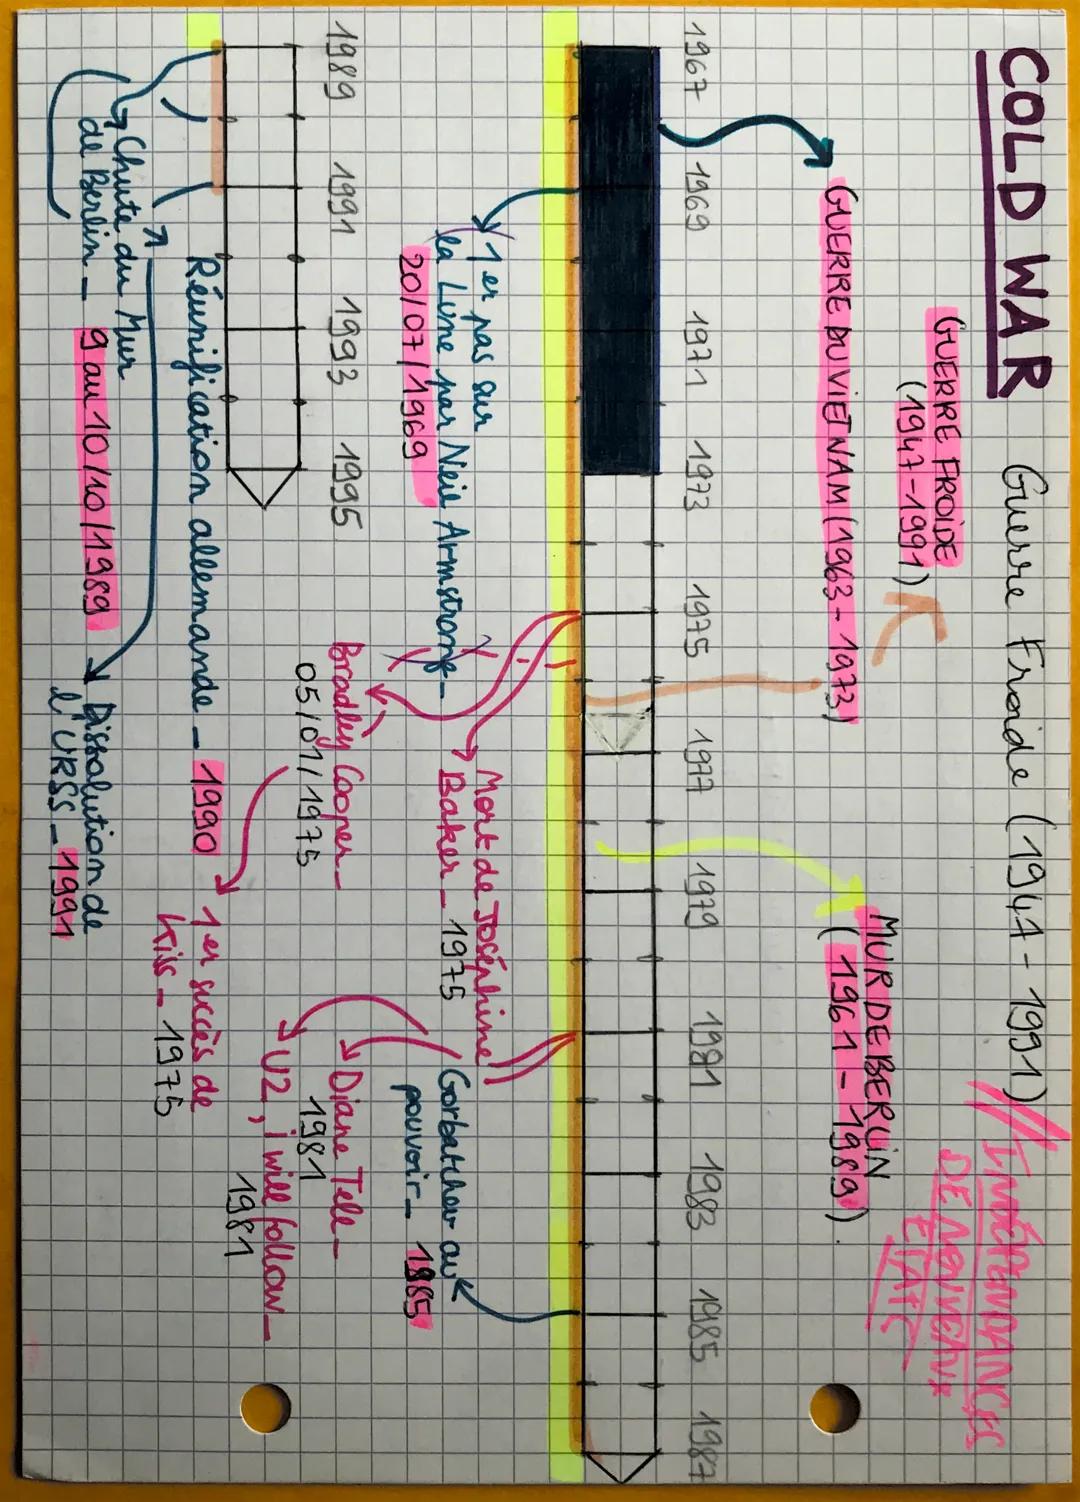 COLD WAR Guerre Froide (1947-1991)
// INDÉPENDANCES
DE NOUVEAUX
ETATS
GUERRE FROIDE
(1947-1991)
GUERRE DU VIETNAM (1963-1973)
MUR DE BERLIN
(1961-1989).
1967 1969 1971 1973 1975 1977 1979 1981 1983 1985 1987
1er pas sur
la Lune par Neil Armstrong_
20/07/1969
Mort de Joséphine
Baker_ 1975
Bradley Cooper_
05/01/1975
Gorbatchev au
pouvoir_ 1985
Diane Tell_
1981
U2, i will follow_
1981
1989 1991 1993 1995
Réunification allemande_ 1990
1er succès de
Kiss_ 1975
Chute du Mur
de Berlin_ 9 au 10/10/1989
Dissolution de
l'URSS_1991